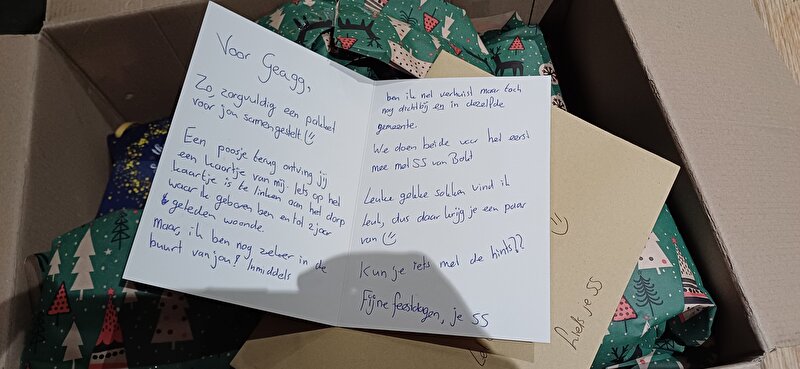 Voor Geagg,
Zo, zorgvuldig een pakket
voor jou samengestelt ☺
Een poosje terug ontving jij
een kaartje van mij. Iets op het
kaartje is te linken aan het dorp
waar ik geboren ben en tot 2 jaar
geleden woonde.
Maar, ik ben nog zieker in de
buurt van jou! Inmiddels
ben ik net verhuist maar toch
nog dichtbij en in dezelfde
gemeente.
We doen beide voor het eerst
mee met SS van Bokt
Leuke gekke sokken vind ik
leuk, dus daar krijg je een paar
van ☺
Kun je iets met de hints??
Fijne feestdagen, je SS
Liefs je SS